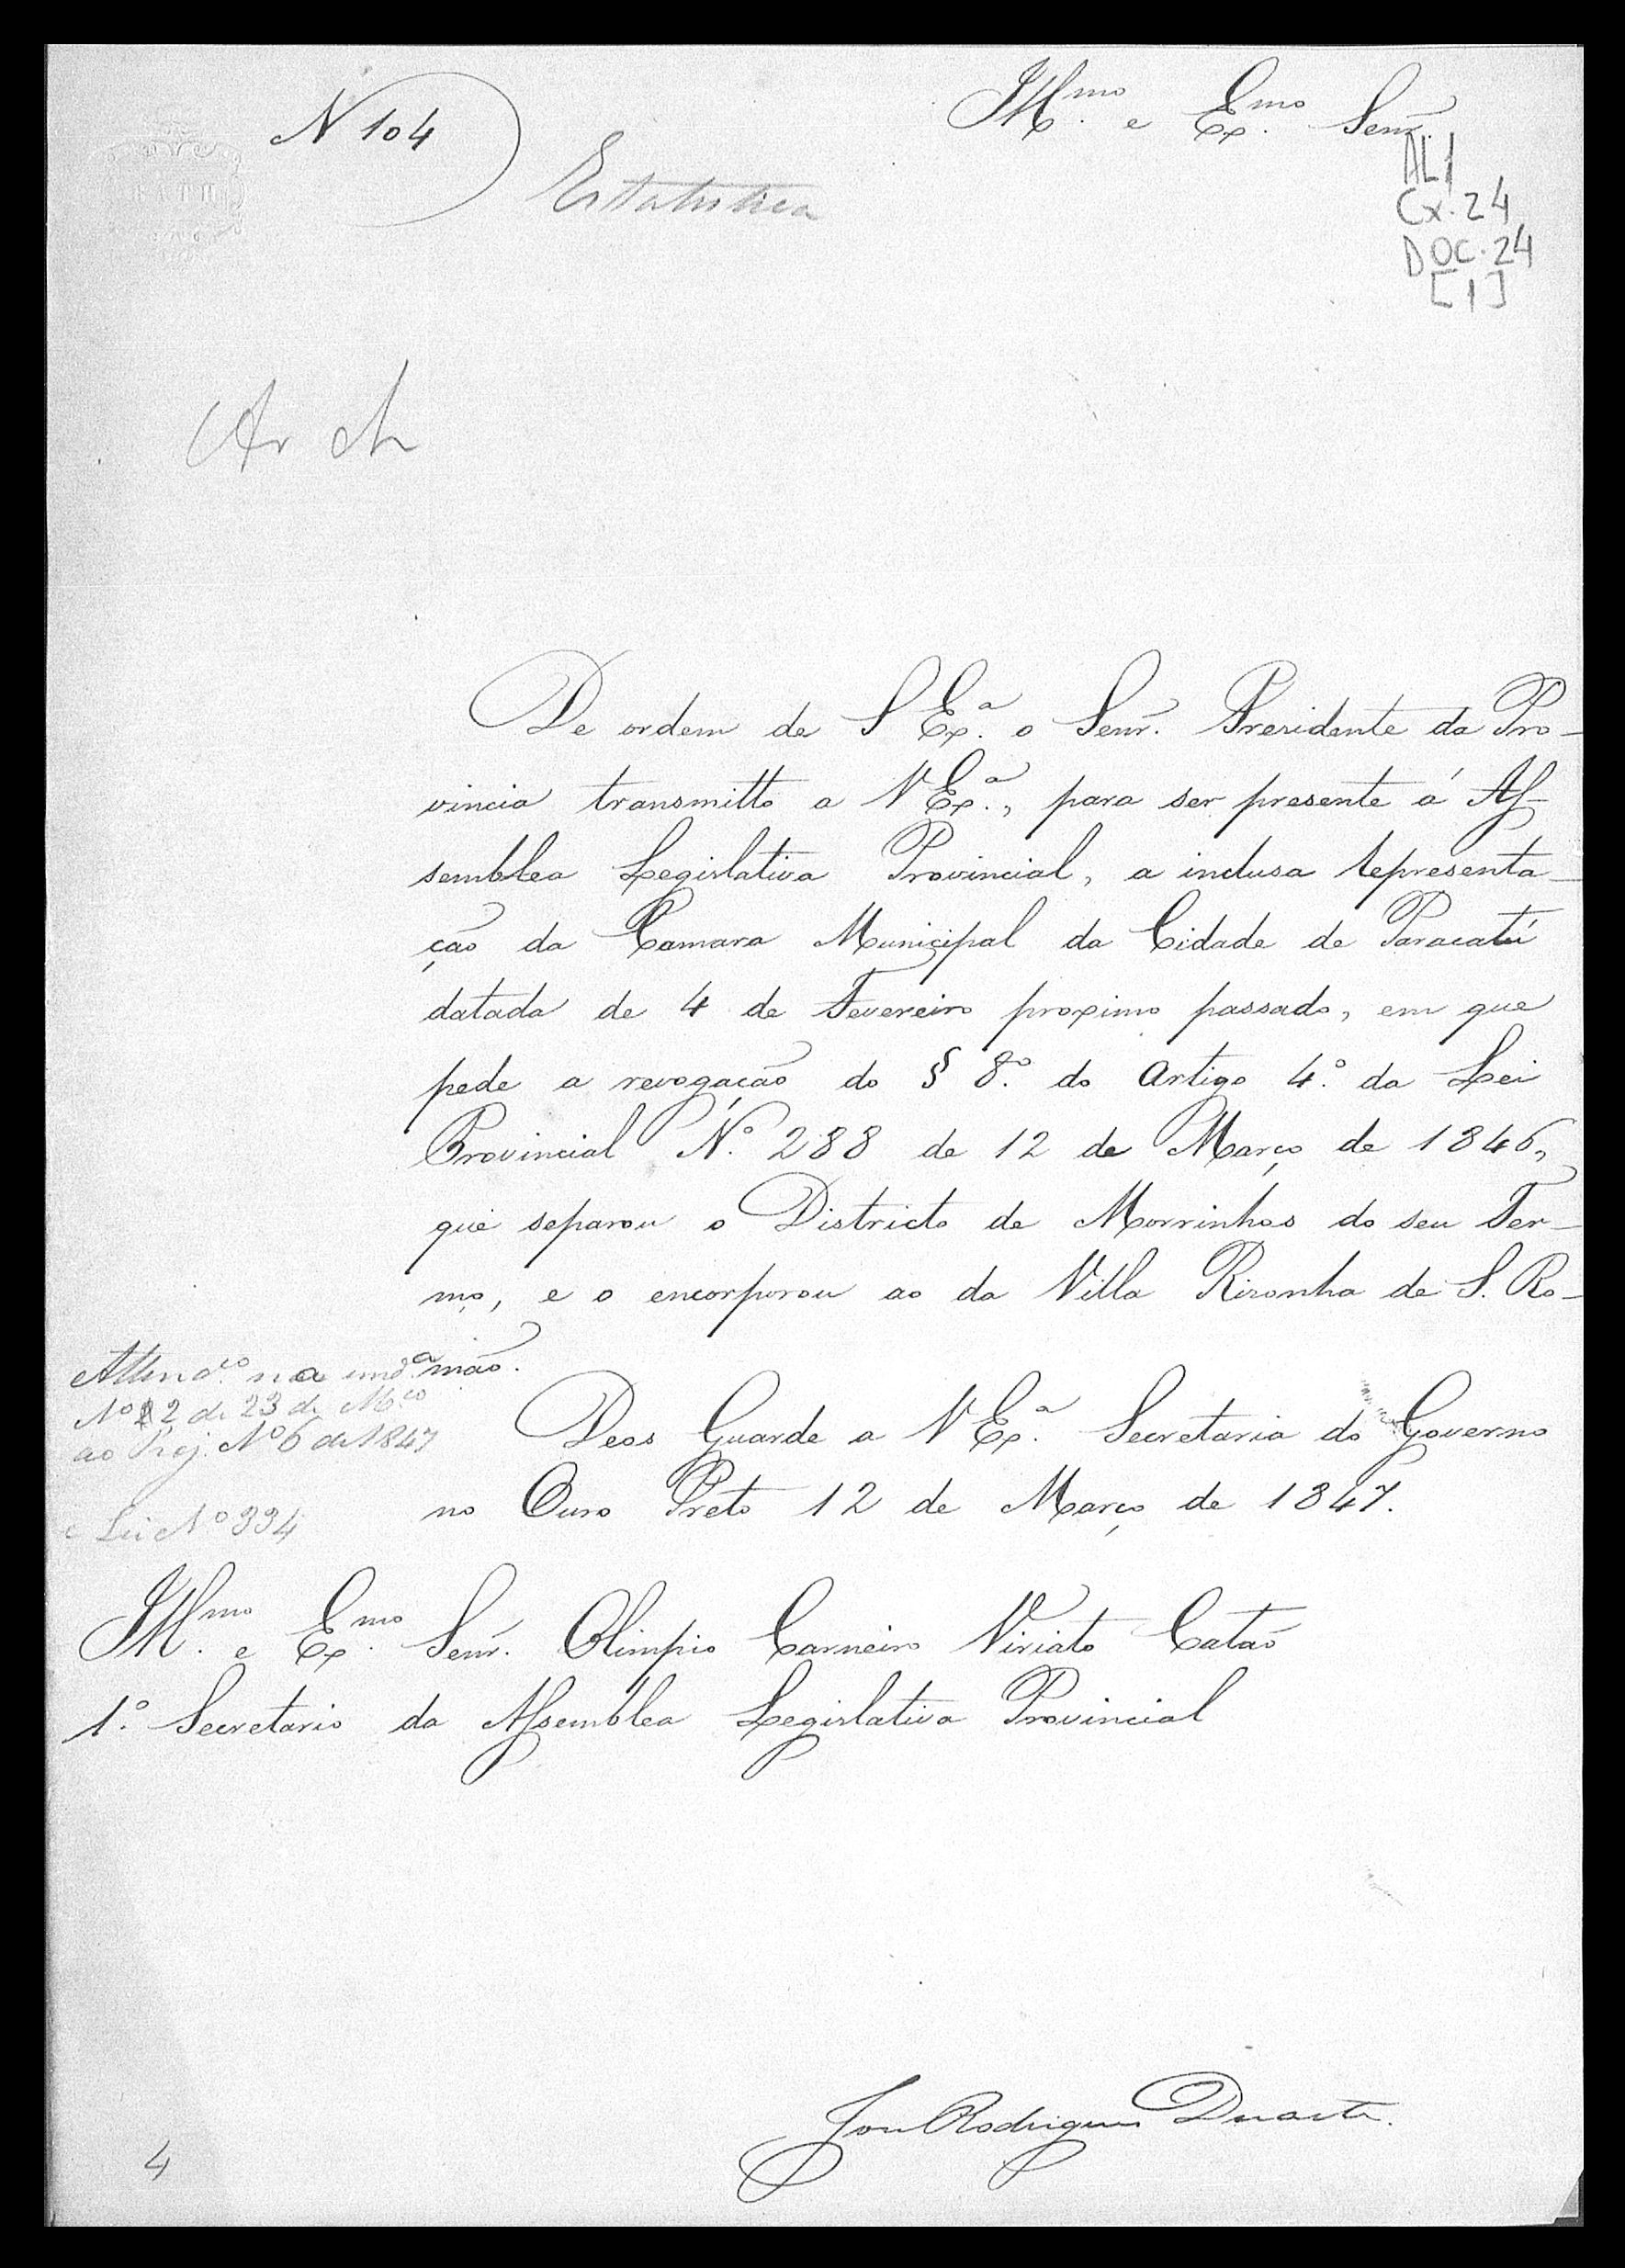 N 104
Illmo. e Exmo. Senr.
Estatistica
AL1
Cx. 24
DOC. 24
[1]
BATH
Arch
De ordem de S Exª. o Senr. Presidente da Pro-
vincia transmitto a V Exª., para ser presente á As-
semblea Legislativa Provincial, a inclusa representa-
ção da Camara Municipal da Cidade de Paracatú
datada de 4 de Fevereiro proximo passado, em que
pede a revogação do § 8.º do Artigo 4.º da Lei
Provincial N.º 288 de 12 de Março de 1846,
que separou o Districto de Morrinhos do seu Ter-
mo, e o encorporou ao da Villa Risonha de S. Ro-
mão.
Attend.º na emd.ª
Nº 2 de 23 de Mço
ao Proj. Nº 6 de 1847
e Lei Nº 334
Deos Guarde a V Exª. Secretaria do Governo
no Ouro Preto 12 de Março de 1847.
Illmo. e Exmo. Senr. Olimpio Carneiro Viriato Catão
1.º Secretario da Assemblea Legislativa Provincial
José Rodrigues Duarte.
4